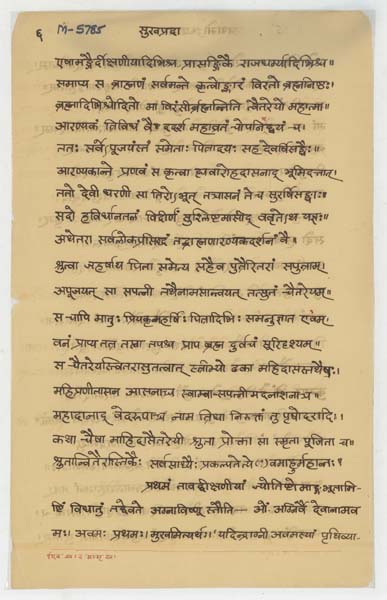 ६ M-5785 सुखप्रदा
एषामङ्गैर्दीक्षणीयादिभिश्च प्रासङ्गिकै राजधर्म्यादिभिश्च
समाप्य स ब्राह्मणं सर्वमन्ते कृत्वोङ्कारं विरतो ब्रह्मनिष्ठः।
ब्रह्मादिभिश्चोदितो मा विरंसीर्ब्रह्मन्निति त्वैतरेयो महात्मा।
आरण्यकं त्रिविधं वै ददर्श महाव्रतं चोपनिषद्द्वयं च।
ततः सर्वे पूजयंस्तं समेताः पित्रादयः सह देवर्षिसङ्घैः॥
आरण्यकान्ते प्रणवं स कृत्वा ह्यवारोहदासनाद् भूमिदत्तात्
ततो देवी धरणी सा तिरोऽभूत् तत्रासनं ते च सुरर्षिसङ्घाः॥
सदो हविर्धानतलं विशीर्णं सुश्लिष्टमासीद् ववृतेऽथ यज्ञः॥
अथेतरा सर्वलोकप्रसिद्धं तद्ब्राह्मणारण्यकदर्शनं वै।
श्रुत्वा जहर्षाथ पिता समेत्य सहैव पुत्रैरितरां सपुत्राम्।
अपूजयत् सा सपत्नी तथैनामसान्त्वयत् तत्सुतं चैतरेयम्॥
स चापि मातुः प्रियकृन्महर्षिः पित्रादिभिः समनुज्ञात एवम्।
वनं प्राप्य तत्र तप्त्वा तपश्च प्राप ब्रह्म दुर्वचं सूरिदृश्यम्॥
स चैतरेयस्त्वितरासुतत्वात् स्त्रीभ्यो ढका महिदासस्तथैषः।
महिप्रणीतासन आत्मनाच स्वाम्बा-सपत्नी मदनाशनाच्च॥
महादानाद् वेदरूपाच्च नाम त्रिधा निरुक्तं तु पृषोदरादि।।
कथा चैषा माहिदासैतरेयी श्रुता प्रोक्ता सा स्मृता पूजिता च॥
श्रुतान्वितैरास्तिकैः सर्वसाध्यैः प्रकल्पतेत्ये(?)वमाहुर्महान्तः॥
प्रथमं तावद्दीक्षणीयां ज्योतिष्टोमाङ्गभूतामि-
ष्टिं विधातुं तद्देवते अग्नाविष्णू स्तौति— ओं अग्निर्वै देवानामव
मः। अवमः प्रथमः। मुखमित्यर्थः। 'यदिन्द्राग्नी अवमस्यां पृथिव्या-